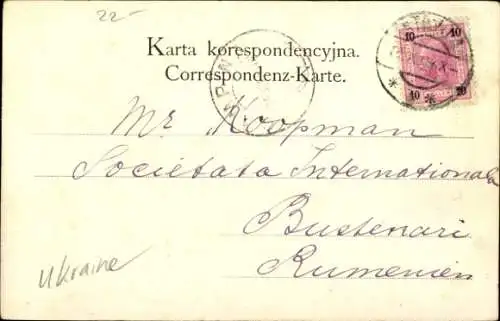 22-
Karta korespondencyjna.
Correspondenz-Karte.
10 10
10 10
Mr Koopman
Societata Internationala
Bustenari
Rumenien
Ukraine